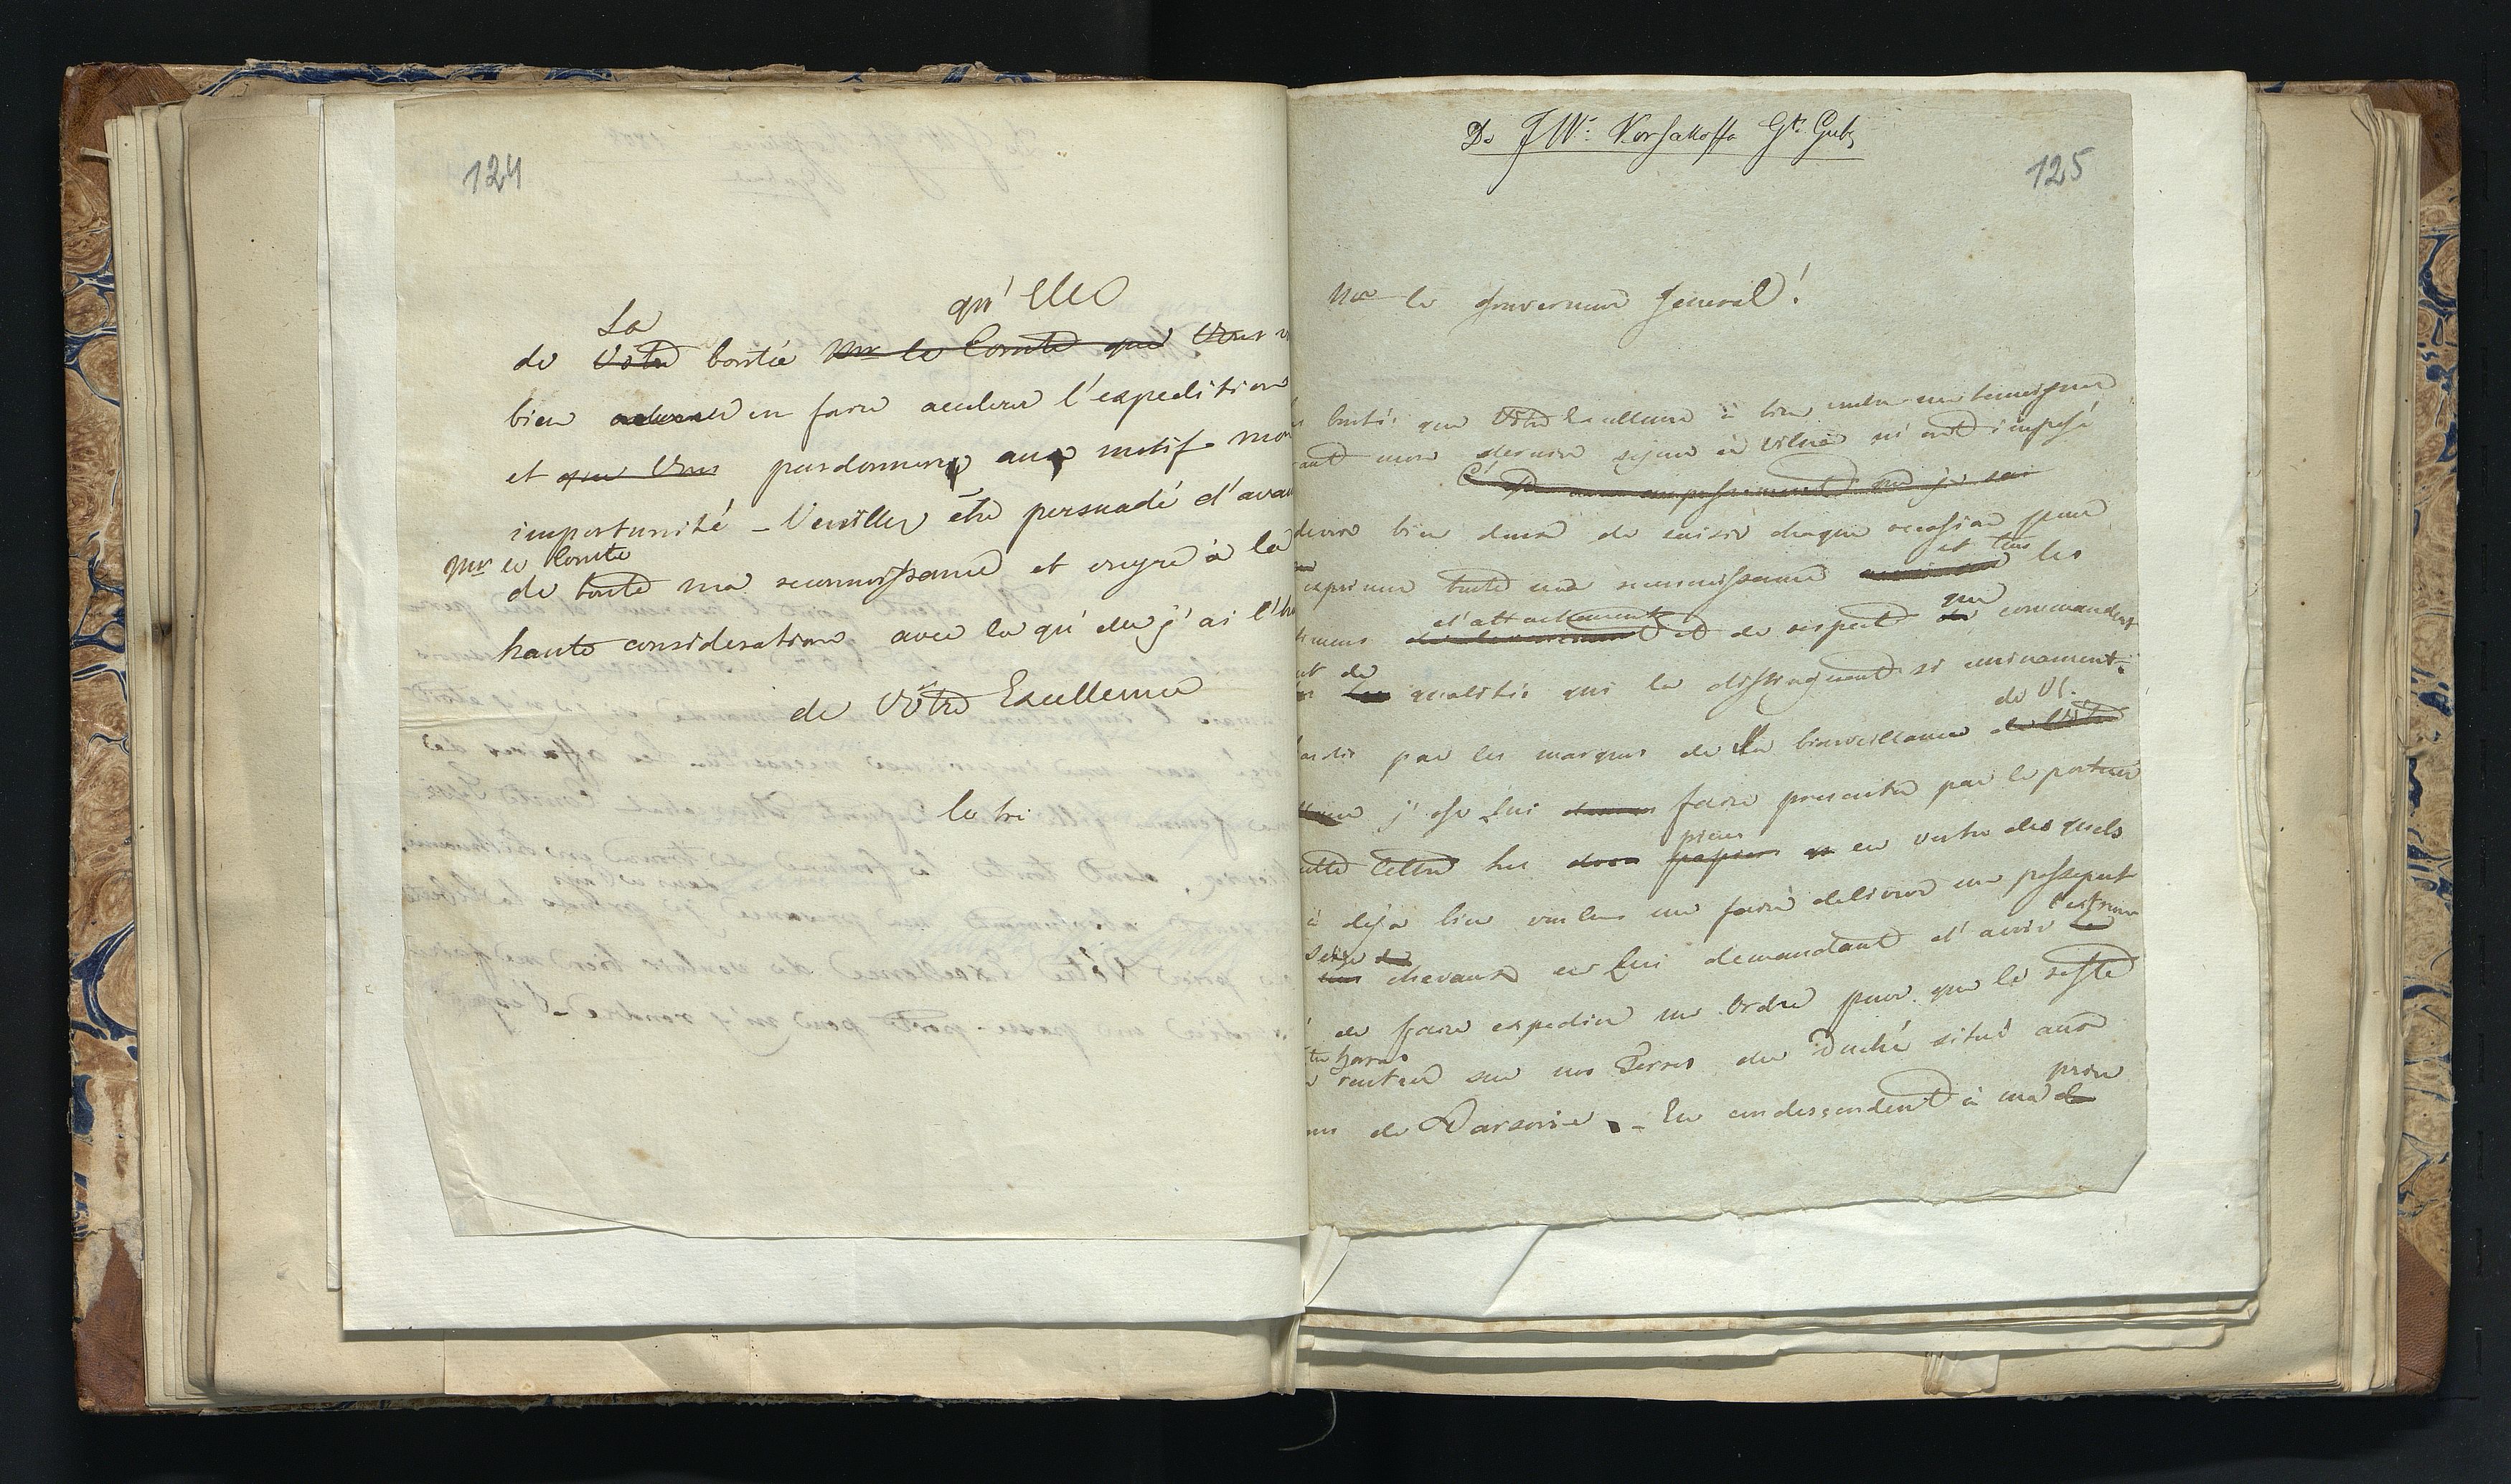 124
qu'elle
La
de Votre bontée Mr le Comte que Vous
bien en faire accelerer l'expedition
et que Vous pardonnerez aux motif mon
importunité – Veuillez être persuadé d'avan
Mr le Comte
de toute ma reconnoissance et croyre à la
haute consideration avec la qu'elle j'ai l'h
de Vôtre Excellence
le tri
Do JW: Korsakoffa Gł: Gub:
125
Mr le Gouverneur General!
bonté que Vôtre Excellence à bien voulu me temoigner
ant mon dernier sejour à Vilna m'ont imposé
C'
empressement que je sai
devoir bien doux de saisir chaque occasion pour
et tous
exprimer toute ma reconnoissance les
d'attachement que
timens et de respect commandent
et de
qualités qui la distinguent si eminament.
de V.
ardis par les marques de Sa bienveillance de Vôtre
j'ose Lui faire presenter par le porteur
pieces
ette lettre les deux papiers en vertu des quels
à déja bien voulu me faire delivrer un passeport
l'extreme
Seize
chevaux en Lui demandant d'avoir la
é de faire expedier un Ordre pour que le reste
haras
rentrer sur nos Terres du Duché situé aux
priere
ns de Varsovie. – En condescendent à ma